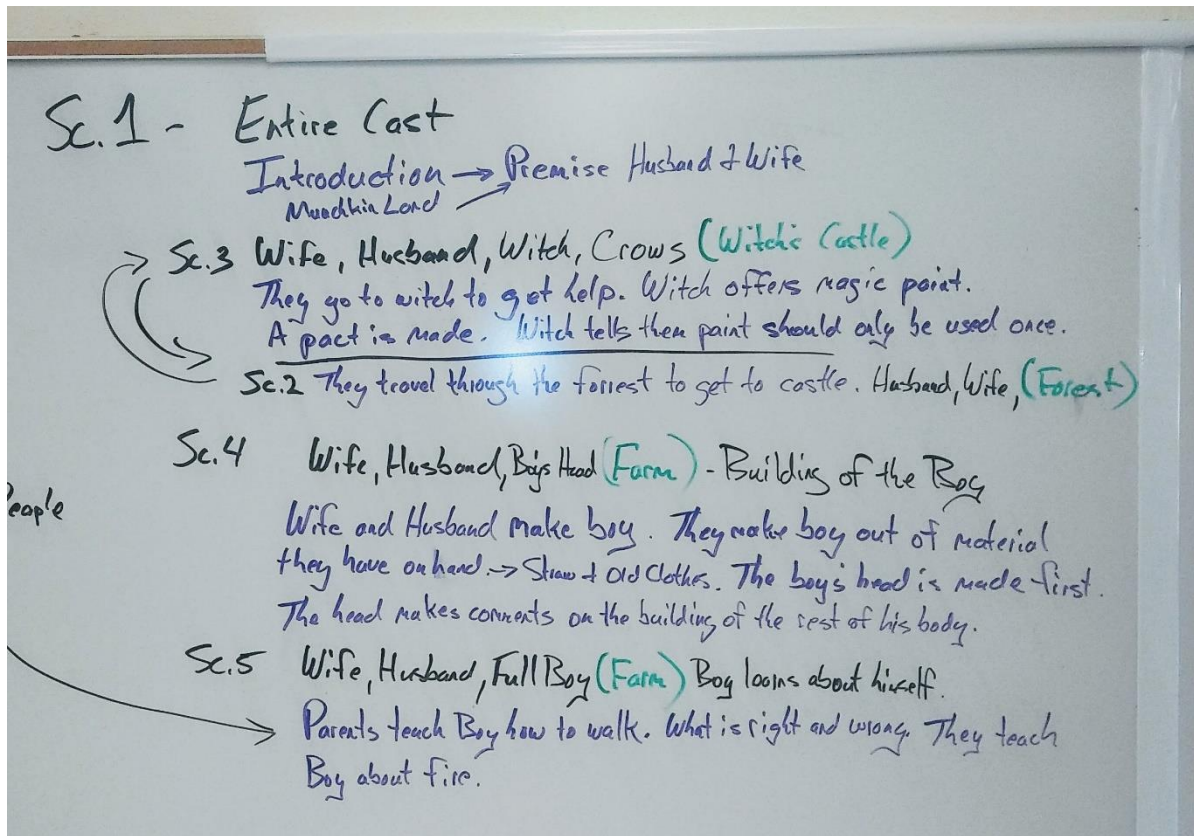 Sc.1 - Entire Cast
Introduction → Premise Husband & Wife
Munchkin Lord
Sc.3 Wife, Husband, Witch, Crows (Witch's Castle)
They go to witch to get help. Witch offers magic paint.
A pact is made. Witch tells them paint should only be used once.
Sc.2 They travel through the forrest to get to castle. Husband, Wife, (Forest)
Sc.4 Wife, Husband, Boy's Head (Farm) - Building of the Boy
People
Wife and Husband make boy. They make boy out of material
they have on hand. → Straw & Old Clothes. The boy's head is made first.
The head makes comments on the building of the rest of his body.
Sc.5 Wife, Husband, Full Boy (Farm) Boy learns about himself.
Parents teach Boy how to walk. What is right and wrong. They teach
Boy about fire.